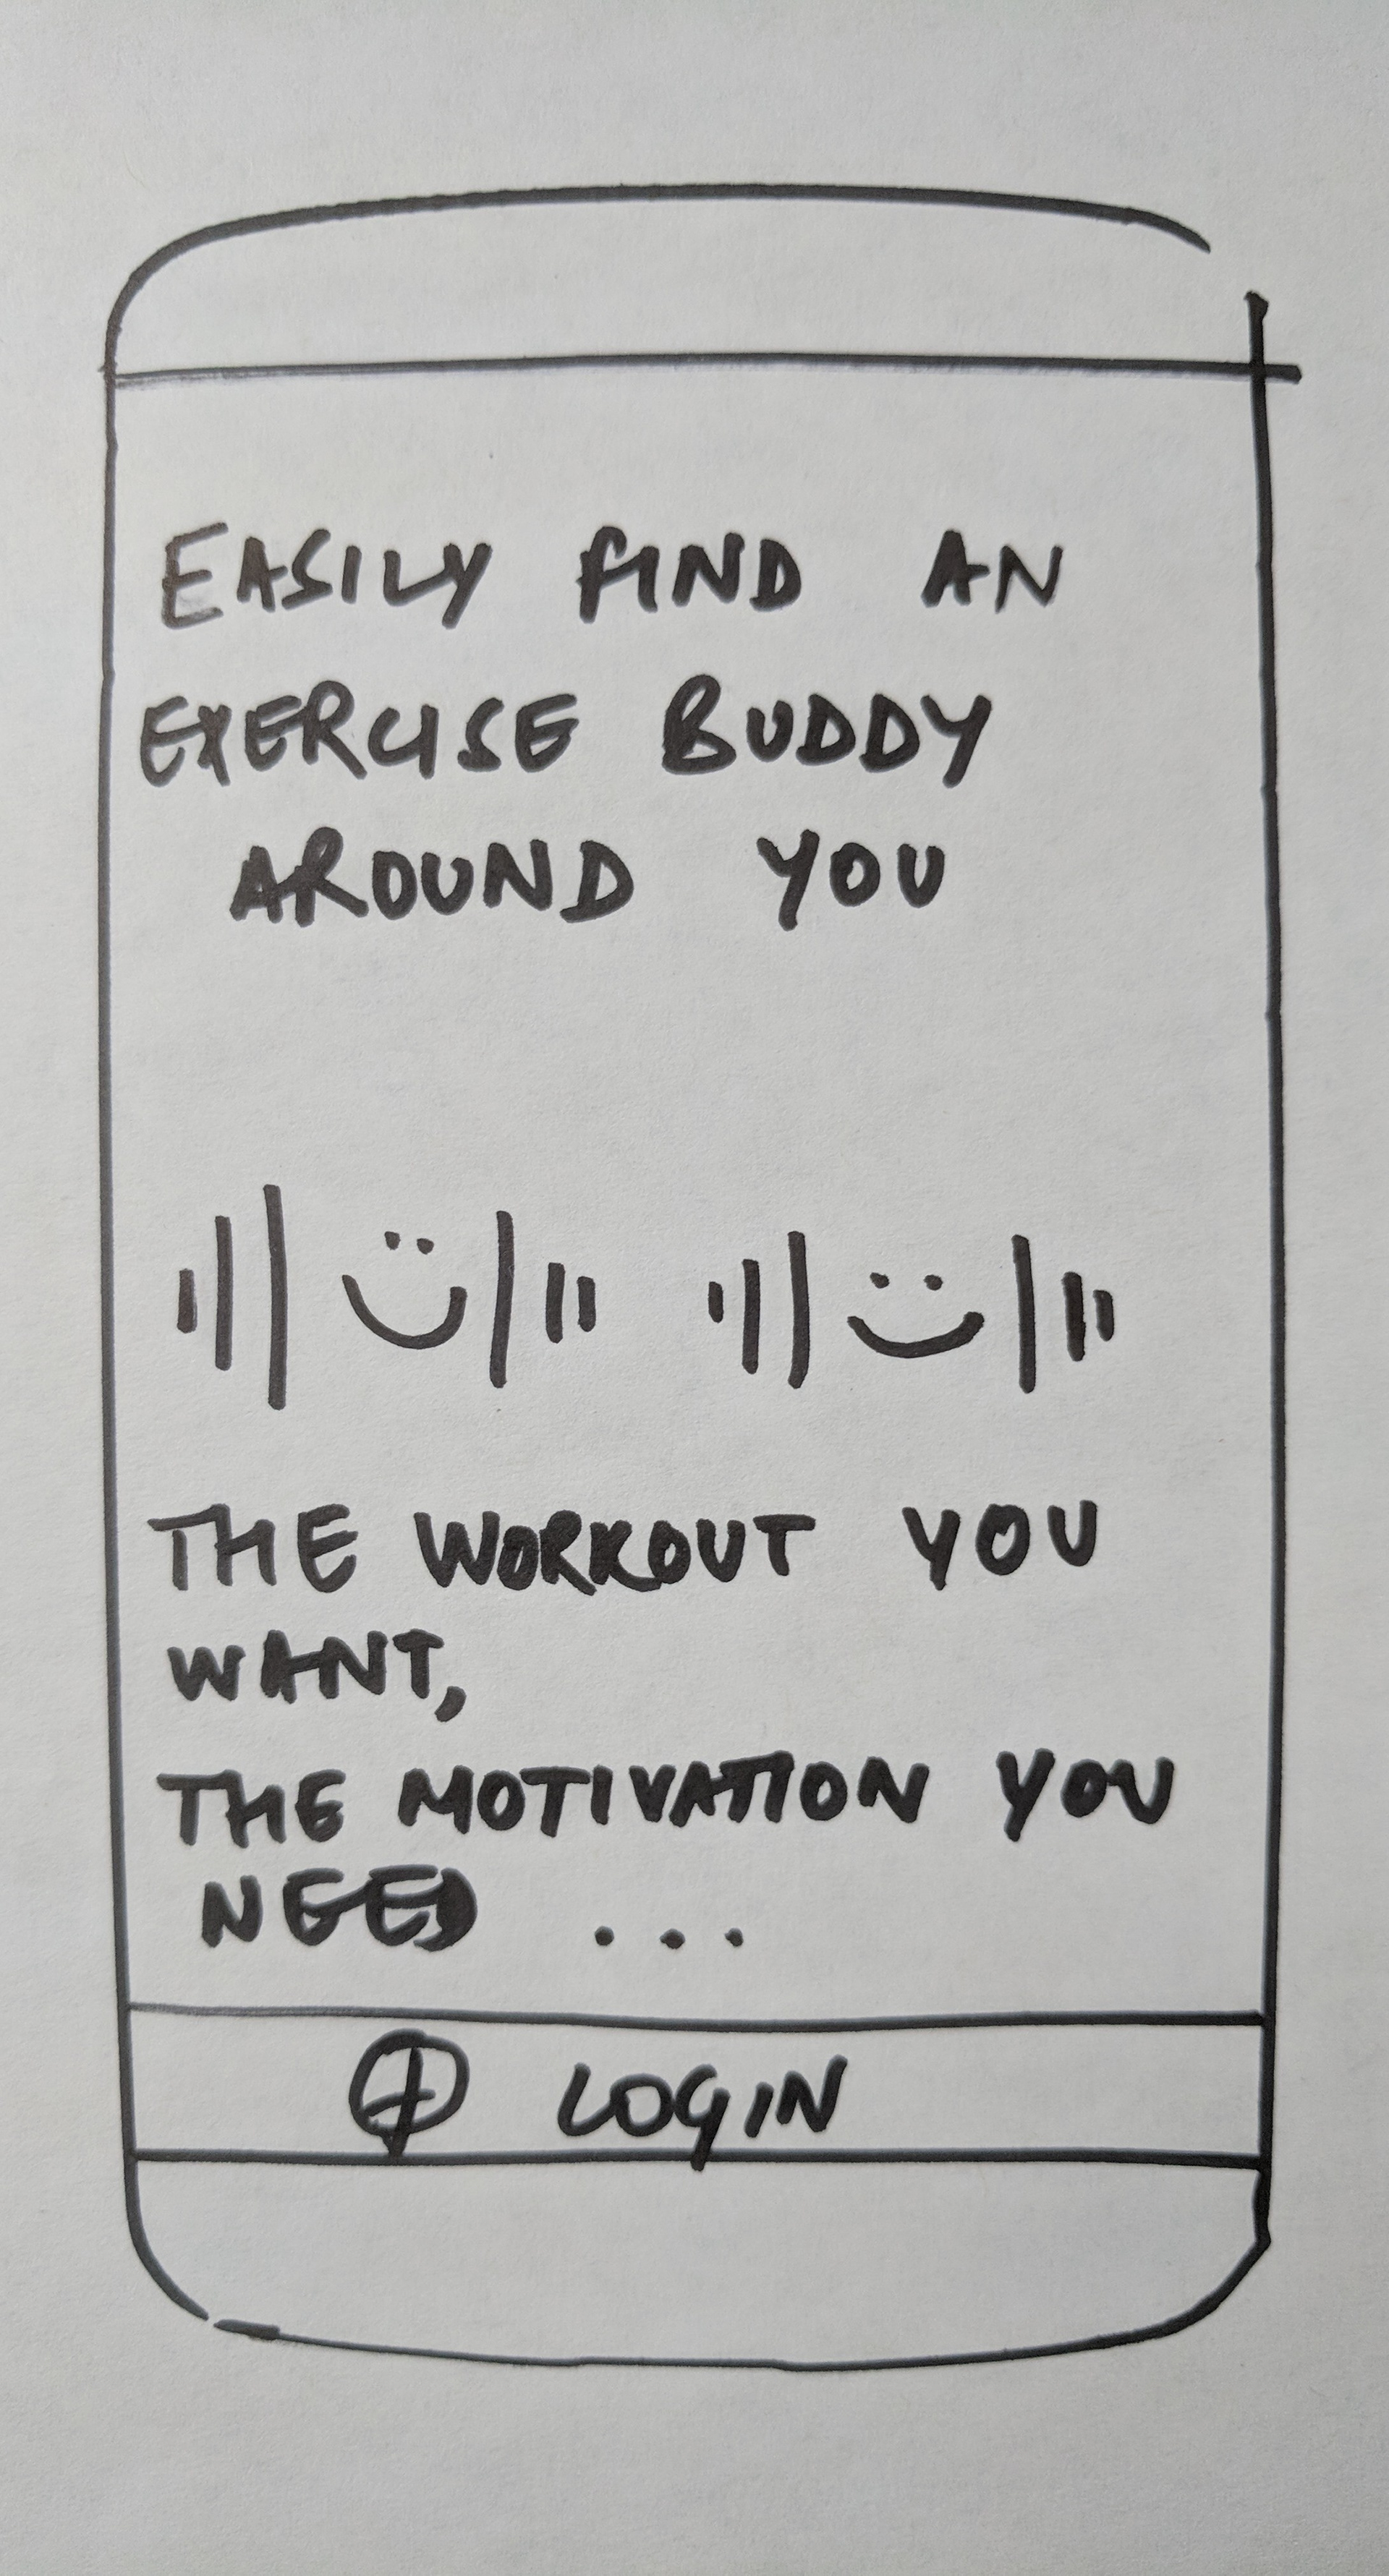 EASILY FIND AN
EXERCISE BUDDY
AROUND YOU
THE WORKOUT YOU
WANT,
THE MOTIVATION YOU
NEED ...
LOGIN